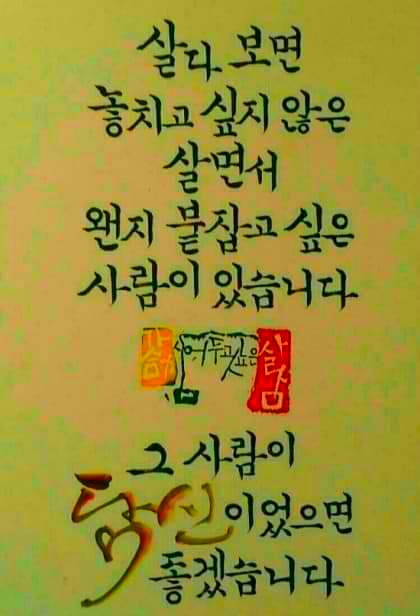 살다 보면
놓치고 싶지 않은
살면서
왠지 붙잡고 싶은
사람이 있습니다
두고 싶은
그 사람이
당신이었으면
좋겠습니다